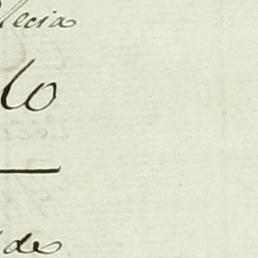 lecia
lo
des